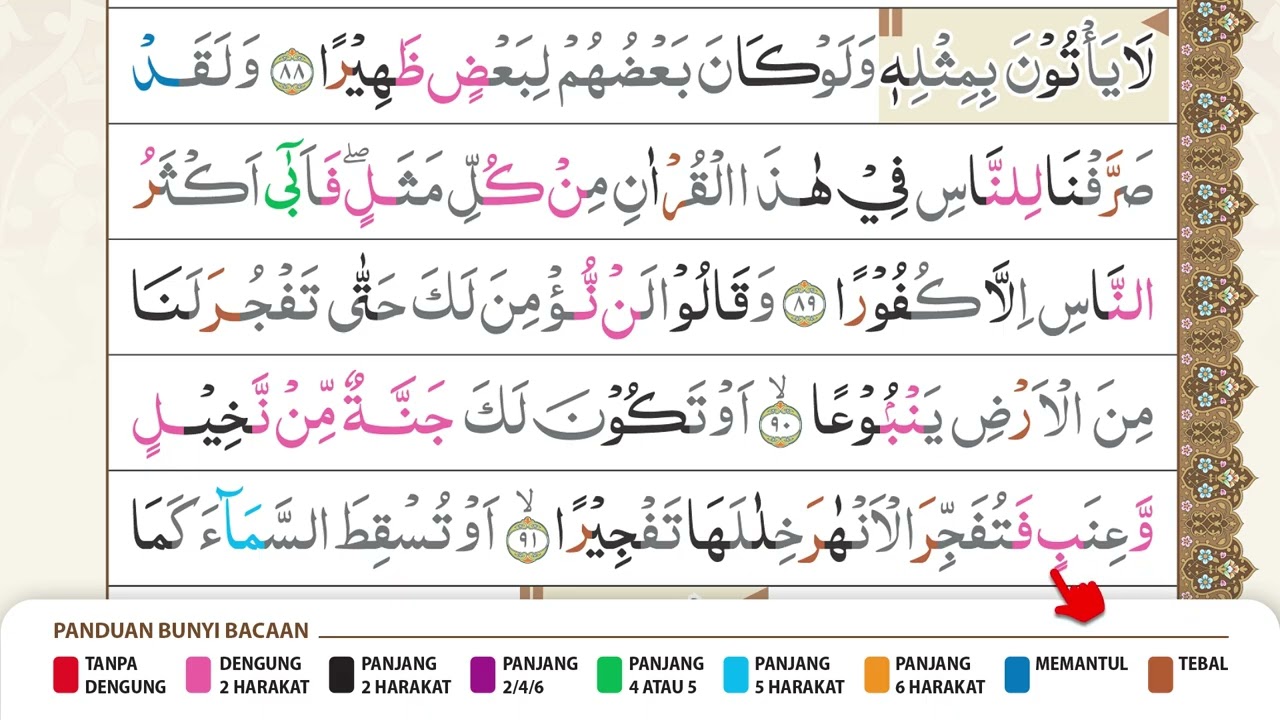 لَا يَأْتُوْنَ بِمِثْلِهٖ وَلَوْ كَانَ بَعْضُهُمْ لِبَعْضٍ ظَهِيْرًا ٨٨ وَلَقَدْ
صَرَّفْنَا لِلنَّاسِ فِيْ هٰذَا الْقُرْاٰنِ مِنْ كُلِّ مَثَلٍۖ فَاَبٰٓى اَكْثَرُ
النَّاسِ اِلَّا كُفُوْرًا ٨٩ وَقَالُوْا لَنْ نُّؤْمِنَ لَكَ حَتّٰى تَفْجُرَ لَنَا
مِنَ الْاَرْضِ يَنْۢبُوْعًاۙ ٩٠ اَوْ تَكُوْنَ لَكَ جَنَّةٌ مِّنْ نَّخِيْلٍ
وَّعِنَبٍ فَتُفَجِّرَ الْاَنْهٰرَ خِلٰلَهَا تَفْجِيْرًاۙ ٩١ اَوْ تُسْقِطَ السَّمَاۤءَ كَمَا
PANDUAN BUNYI BACAAN
TANPA DENGUNG
DENGUNG 2 HARAKAT
PANJANG 2 HARAKAT
PANJANG 2/4/6
PANJANG 4 ATAU 5
PANJANG 5 HARAKAT
PANJANG 6 HARAKAT
MEMANTUL
TEBAL